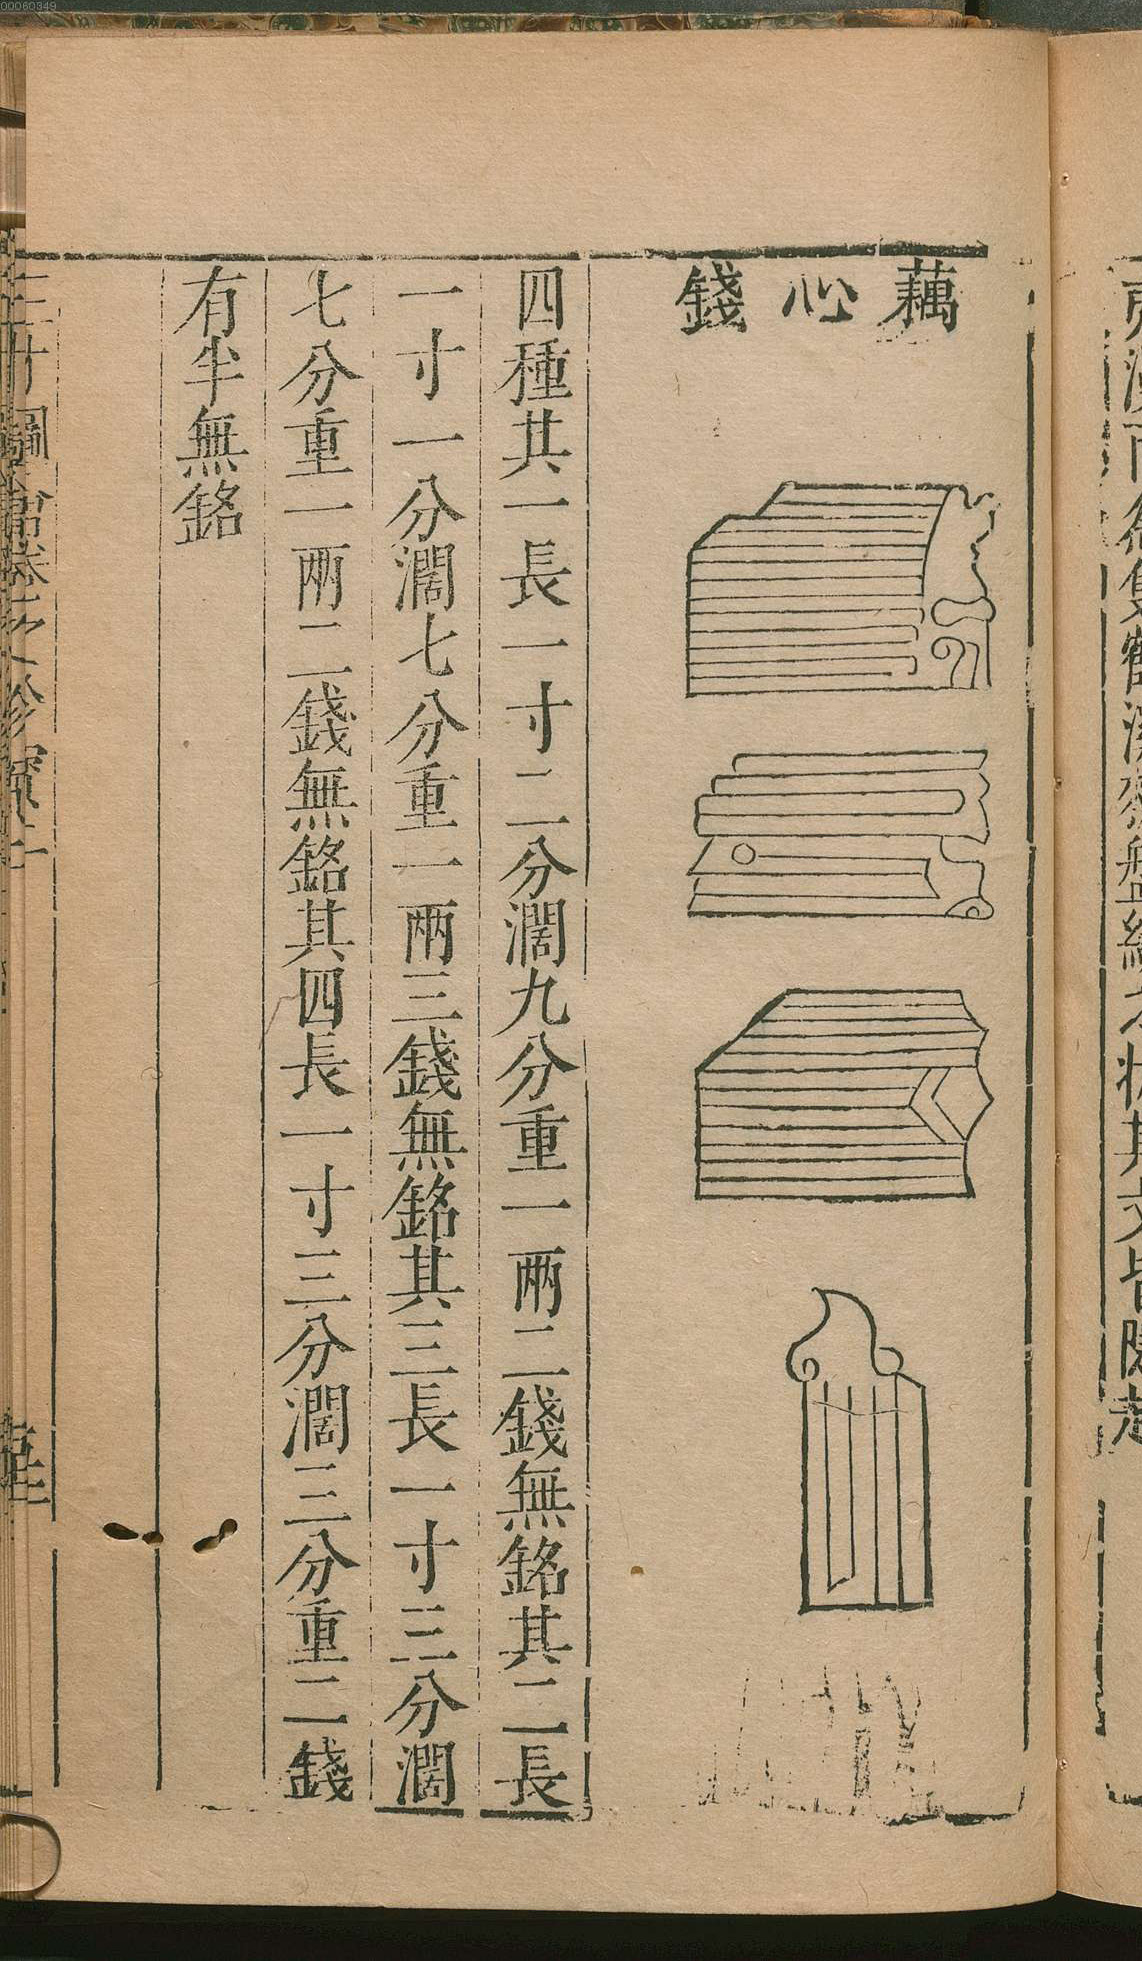 藕心錢
四種其一長一寸二分濶九分重一两二錢無銘其二長
一寸一分濶七分重一两三錢無銘其三長一寸三分濶
七分重一两二錢無銘其四長一寸三分濶三分重二錢
有半無銘
00060349